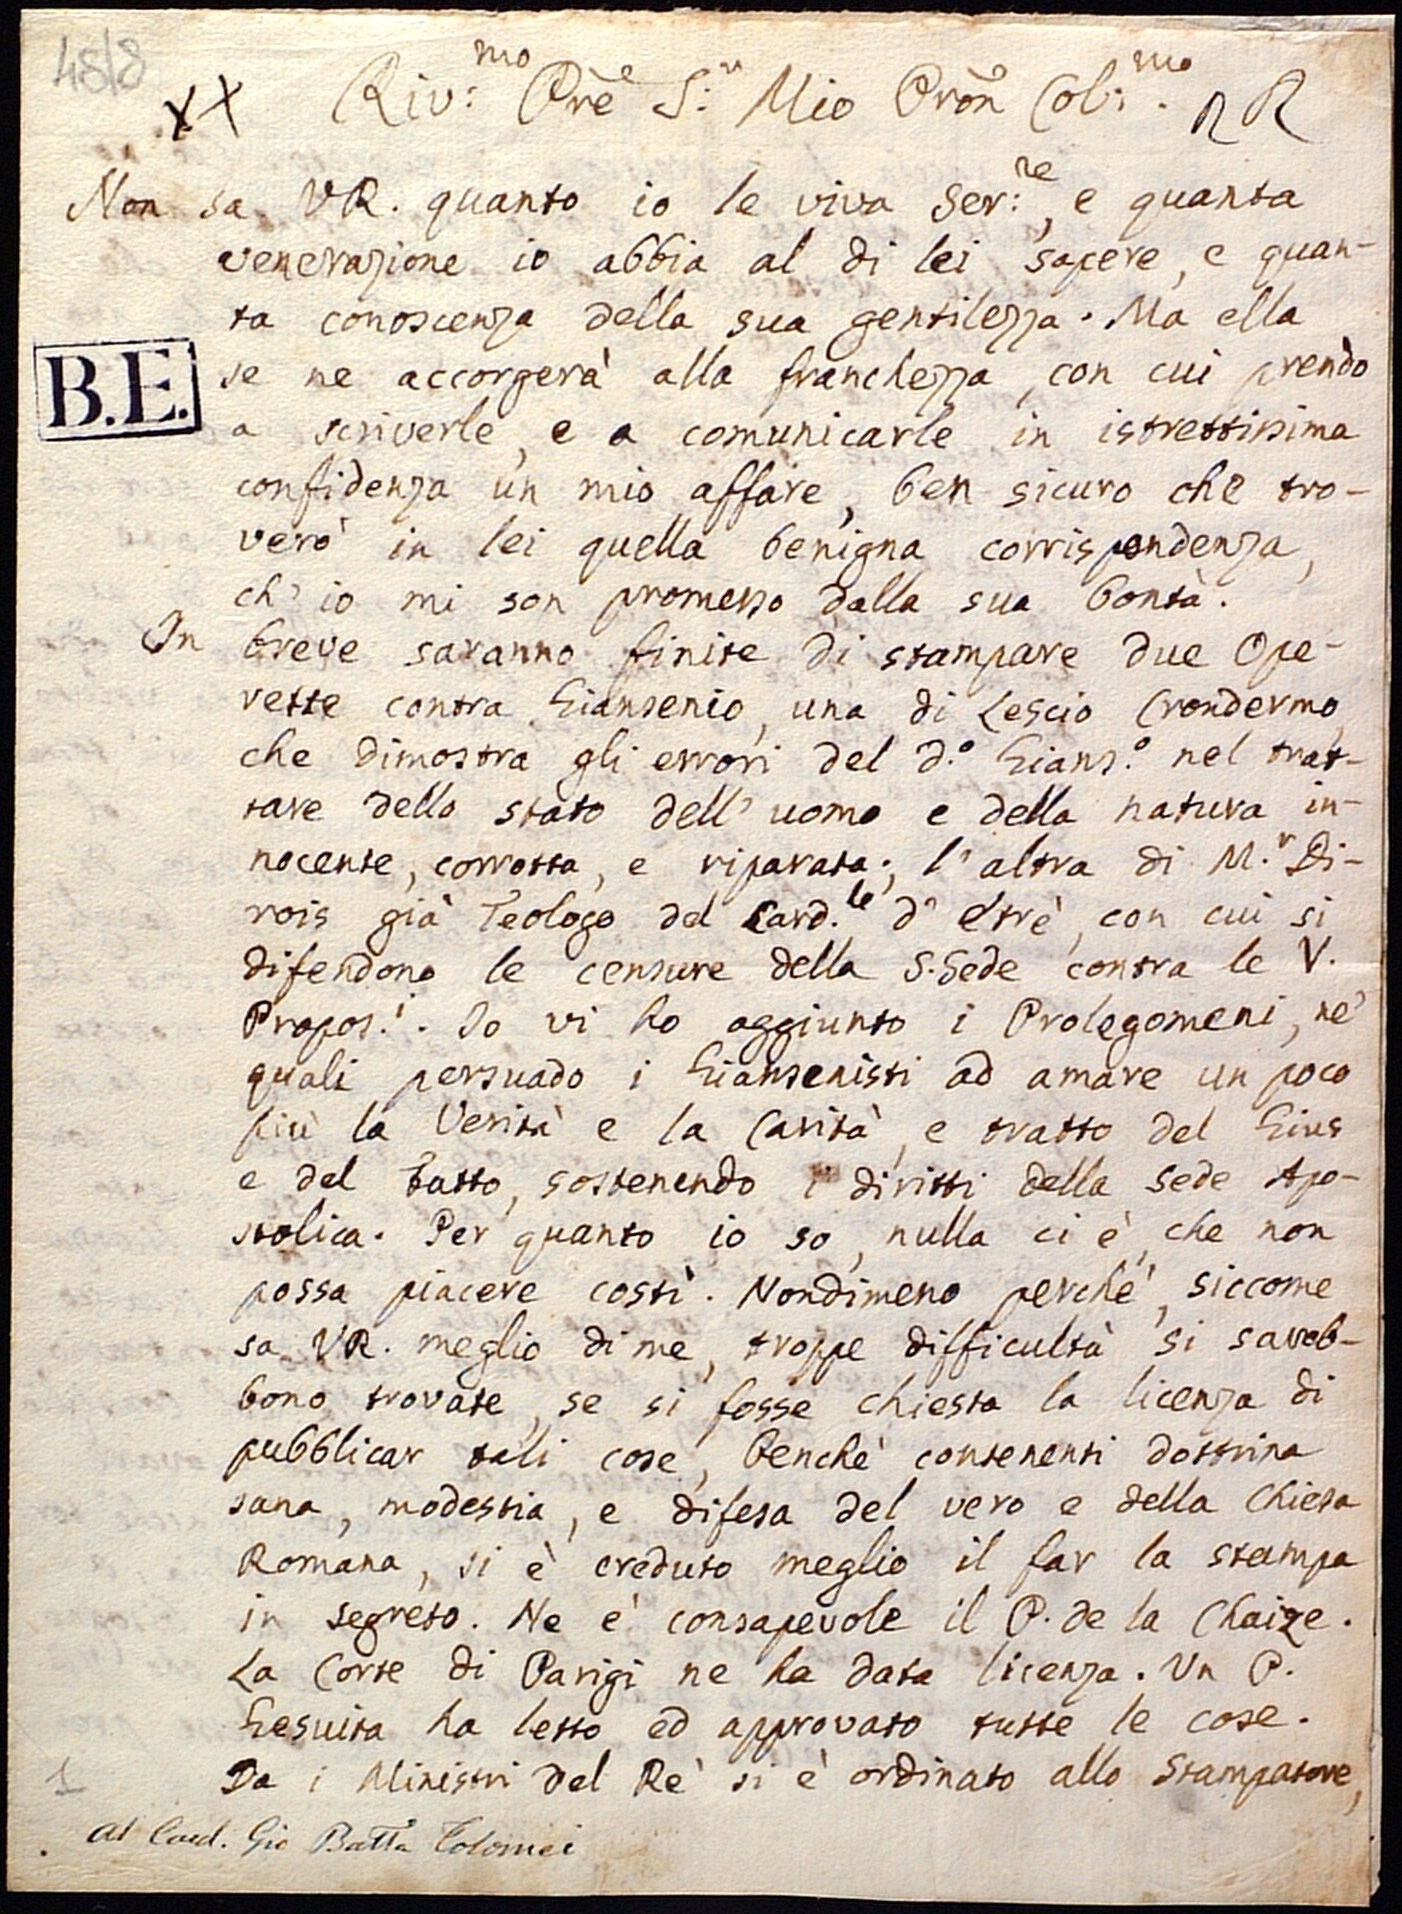 48/8
XX Riv:mo Prẽ S:r Mio Prõn Col:mo. RR
Non sa VR. quanto io le viva ser:re, e quanta
venerazione io abbia al di lei sapere, e quan-
ta conoscenza della sua gentilezza. Ma ella
B.E.
se ne accorgerà alla franchezza, con cui prendo
a scriverle, e a comunicarle in istrettissima
confidenza un mio affare, ben sicuro che tro-
verò in lei quella benigna corrispondenza,
ch'io mi son promesso dalla sua bontà.
In breve saranno finite di stampare due Ope-
rette contra Giansenio, una di Lescio Crondermo,
che dimostra gli errori del d.o Gians.o nel trat-
tare dello stato dell'uomo e della natura in-
nocente, corrotta, e riparata; l'altra di M.r Di-
rois già Teologo del Card.le d'Etrè, con cui si
difendono le censure della S. Sede contra le V.
Propos.i. Io vi ho aggiunto i Prolegomeni, ne'
quali persuado i Giansenisti ad amare un poco
più la Verità e la Carità, e tratto del Gius
e del Fatto, sostenendo i diritti della Sede Apo-
stolica. Per quanto io so, nulla ci è, che non
possa piacere costì. Nondimeno perchè, siccome
sa VR. meglio di me, troppe difficultà si sareb-
bono trovate, se si fosse chiesta la licenza di
pubblicar tali cose, benchè contenenti dottrina
sana, modestia, e difesa del vero e della Chiesa
Romana, si è creduto meglio il far la stampa
in segreto. Ne è consapevole il P. de la Chaize.
La Corte di Parigi ne ha data licenza. Un P.
Gesuita ha letto ed approvato tutte le cose.
Da i Ministri del Rè si è ordinato allo Stampatore,
1
Al Card. Gio Batta Tolomei